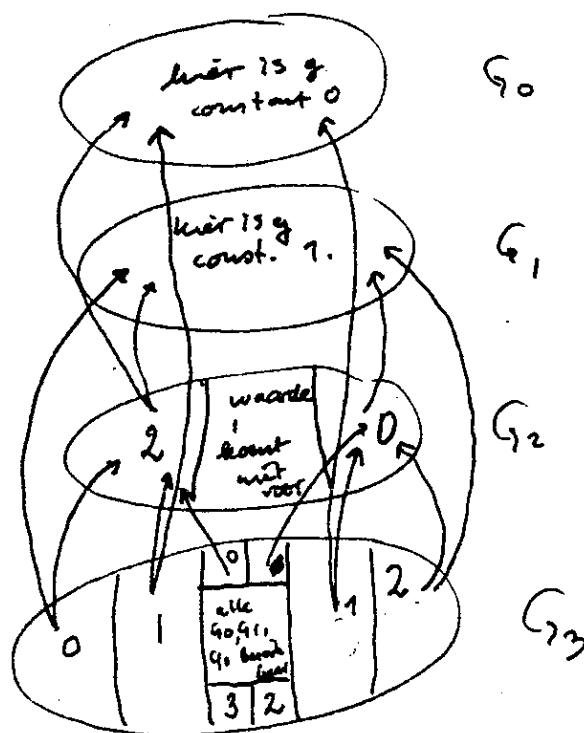 hier is g
constant 0
G0
hier is g
const. 1.
G1
2
waarde
1
komt
niet
voor
0
G2
0
1
0
alle
G0, G1,
3
2
1
2
G3